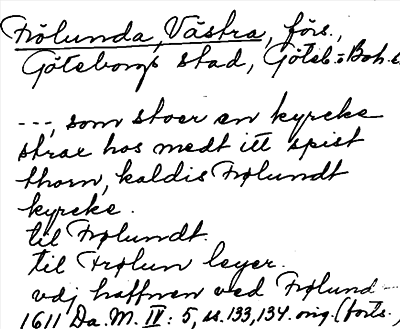 Frölunda, Västra, förs.,
Göteborgs stad, Göteb. o Boh. l.
---, som stoer en kyrcke
strax hos medt itt spist
thorn, kaldis Frølundt
kyrcke.
til Frølundt.
til Frølun leyer.
vdj haffnen ved Frølund --
1611 Da. M. IV: 5, s. 133, 134. orig. (forts.)